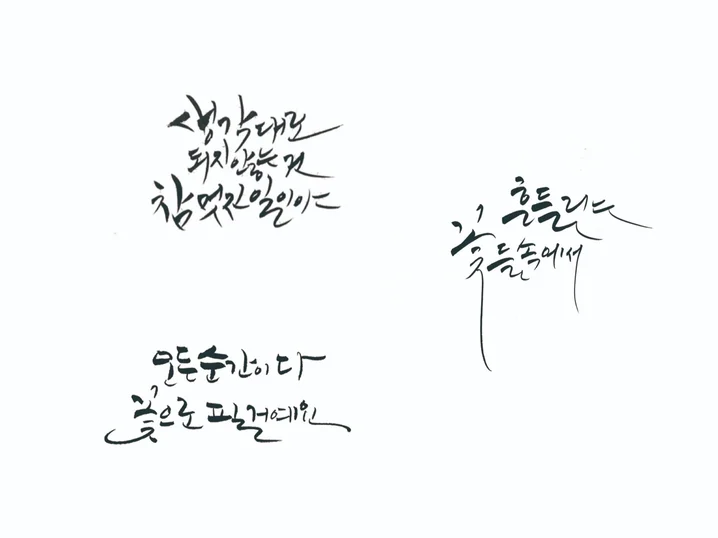 생각대로
되지 않는 것
참 멋진 일인야
흔들린다
꽃들 속에서
모든 순간이 다
꽃으로 필 걸 예인